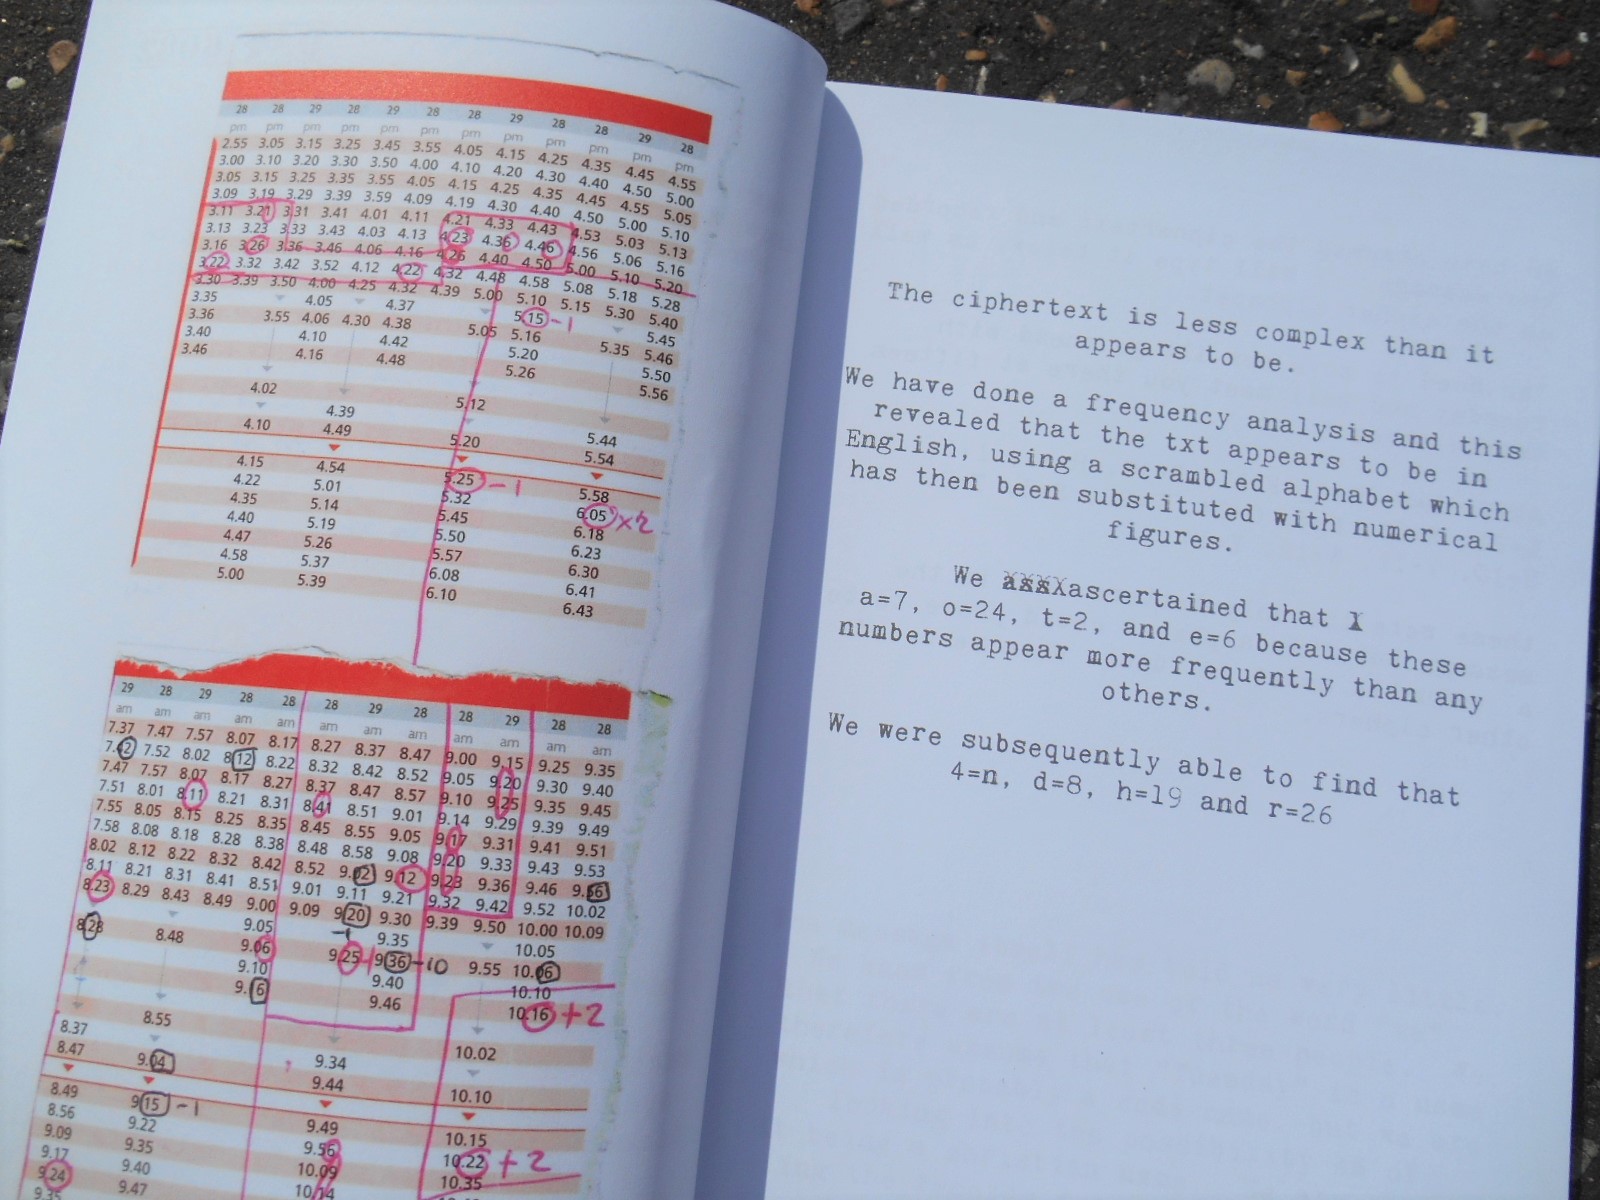 28 28 29 28 29 28 28 29 28 28 29 28
pm pm pm pm pm pm pm pm pm pm pm pm
2.55 3.05 3.15 3.25 3.45 3.55 4.05 4.15 4.25 4.35 4.45 4.55
3.00 3.10 3.20 3.30 3.50 4.00 4.10 4.20 4.30 4.40 4.50 5.00
3.05 3.15 3.25 3.35 3.55 4.05 4.15 4.25 4.35 4.45 4.55 5.05
3.09 3.19 3.29 3.39 3.59 4.09 4.19 4.30 4.40 4.50 5.00 5.10
3.11 3.21 3.31 3.41 4.01 4.11 4.21 4.33 4.43 4.53 5.03 5.13
3.13 3.23 3.33 3.43 4.03 4.13 4.23 4.36 4.46 4.56 5.06 5.16
3.16 3.26 3.36 3.46 4.06 4.16 4.26 4.40 4.50 5.00 5.10 5.20
3.22 3.32 3.42 3.52 4.12 4.22 4.32 4.48 4.58 5.08 5.18 5.28
3.30 3.39 3.50 4.00 4.25 4.32 4.39 5.00 5.10 5.15 5.30 5.40
3.35 4.05 4.37 5.15 -1 5.45
3.36 3.55 4.06 4.30 4.38 5.05 5.16 5.35 5.46
3.40 4.10 4.42 5.20 5.50
3.46 4.16 4.48 5.26 5.56
4.02 4.39 5.12 5.44
4.10 4.49 5.20 5.54
4.15 4.54 5.25 -1 5.58
4.22 5.01 5.32 6.05 x2
4.35 5.14 5.45 6.18
4.40 5.19 5.50 6.23
4.47 5.26 5.57 6.30
4.58 5.37 6.08 6.41
5.00 5.39 6.10 6.43
29 28 29 28 28 28 29 28 28 29 28 28
am am am am am am am am am am am am
7.37 7.47 7.57 8.07 8.17 8.27 8.37 8.47 9.00 9.15 9.25 9.35
7.42 7.52 8.02 8.12 8.22 8.32 8.42 8.52 9.05 9.20 9.30 9.40
7.47 7.57 8.07 8.17 8.27 8.37 8.47 8.57 9.10 9.25 9.35 9.45
7.51 8.01 8.11 8.21 8.31 8.41 8.51 9.01 9.14 9.29 9.39 9.49
7.55 8.05 8.15 8.25 8.35 8.45 8.55 9.05 9.17 9.31 9.41 9.51
7.58 8.08 8.18 8.28 8.38 8.48 8.58 9.08 9.20 9.33 9.43 9.53
8.02 8.12 8.22 8.32 8.42 8.52 9.02 9.12 9.23 9.36 9.46 9.56
8.11 8.21 8.31 8.41 8.51 9.01 9.11 9.21 9.32 9.42 9.52 10.02
8.23 8.29 8.43 8.49 9.00 9.09 9.20 9.30 9.39 9.50 10.00 10.09
8.28 9.05 9.35 10.05
8.48 9.06 9.25 9.36 -10 9.55 10.06
9.10 9.40 10.10
9.16 9.46 10.16 +2
8.37 8.55 9.34 10.02
8.47 9.04 9.44 10.10
8.49 9.15 -1 9.49 10.15
8.56 9.22 9.56 10.22 +2
9.09 9.35 10.09 10.35
9.17 9.40 10.14
9.24 9.47
The ciphertext is less complex than it
appears to be.
We have done a frequency analysis and this
revealed that the txt appears to be in
English, using a scrambled alphabet which
has then been substituted with numerical
figures.
We ascertained that
a=7, o=24, t=2, and e=6 because these
numbers appear more frequently than any
others.
We were subsequently able to find that
4=n, d=8, h=19 and r=26